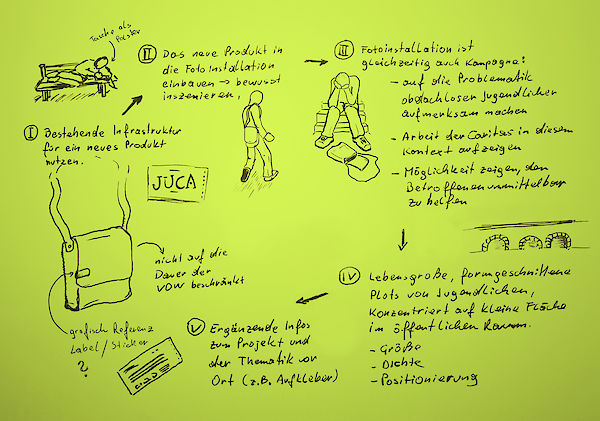 Tasche als
Polster
I Bestehende Infrastruktur
für ein neues Produkt
nutzen.
JUCA
nicht auf die
Dauer der
VDW beschränkt
grafisch Referenz
Label/Sticker
?
II Das neue Produkt in
die Fotoinstallation
einbauen → bewusst
inszenieren.
III Fotoinstallation ist
gleichzeitig auch Kampagne:
- auf die Problematik
obdachloser Jugendlicher
aufmerksam machen
- Arbeit der Caritas in diesem
Kontext aufzeigen
- Möglichkeit zeigen, den
Betroffenen unmittelbar
zu helfen
IV Lebensgroße, formgeschnittene
Plots von Jugendlichen,
konzentriert auf kleine Fläche
im öffentlichen Raum.
- Größe
- Dichte
- Positionierung
V Ergänzende Infos
zum Projekt und
der Thematik vor
Ort (z.B. Aufkleber)